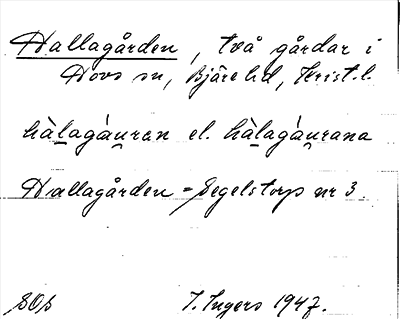 Hallagården, två gårdar i
Hovs sn, Bjäre hd, Krist. l.
hàlagàu̯ran el. hàlagàu̯rana
Hallagården = Segelstorp nr 3.
I. Ingers 1947.